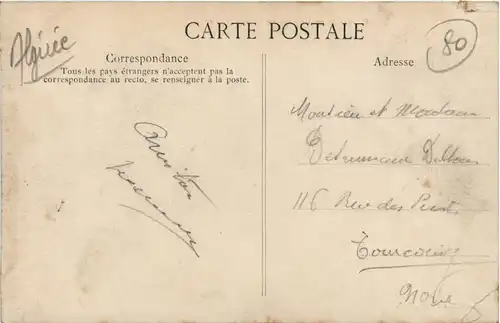 CARTE POSTALE
Algérie
80
Correspondance
Tous les pays étrangers n'acceptent pas la
correspondance au recto, se renseigner à la poste.
Adresse
Monsieur et Madame
116 Rue des Piats
Tourcoing
Nord